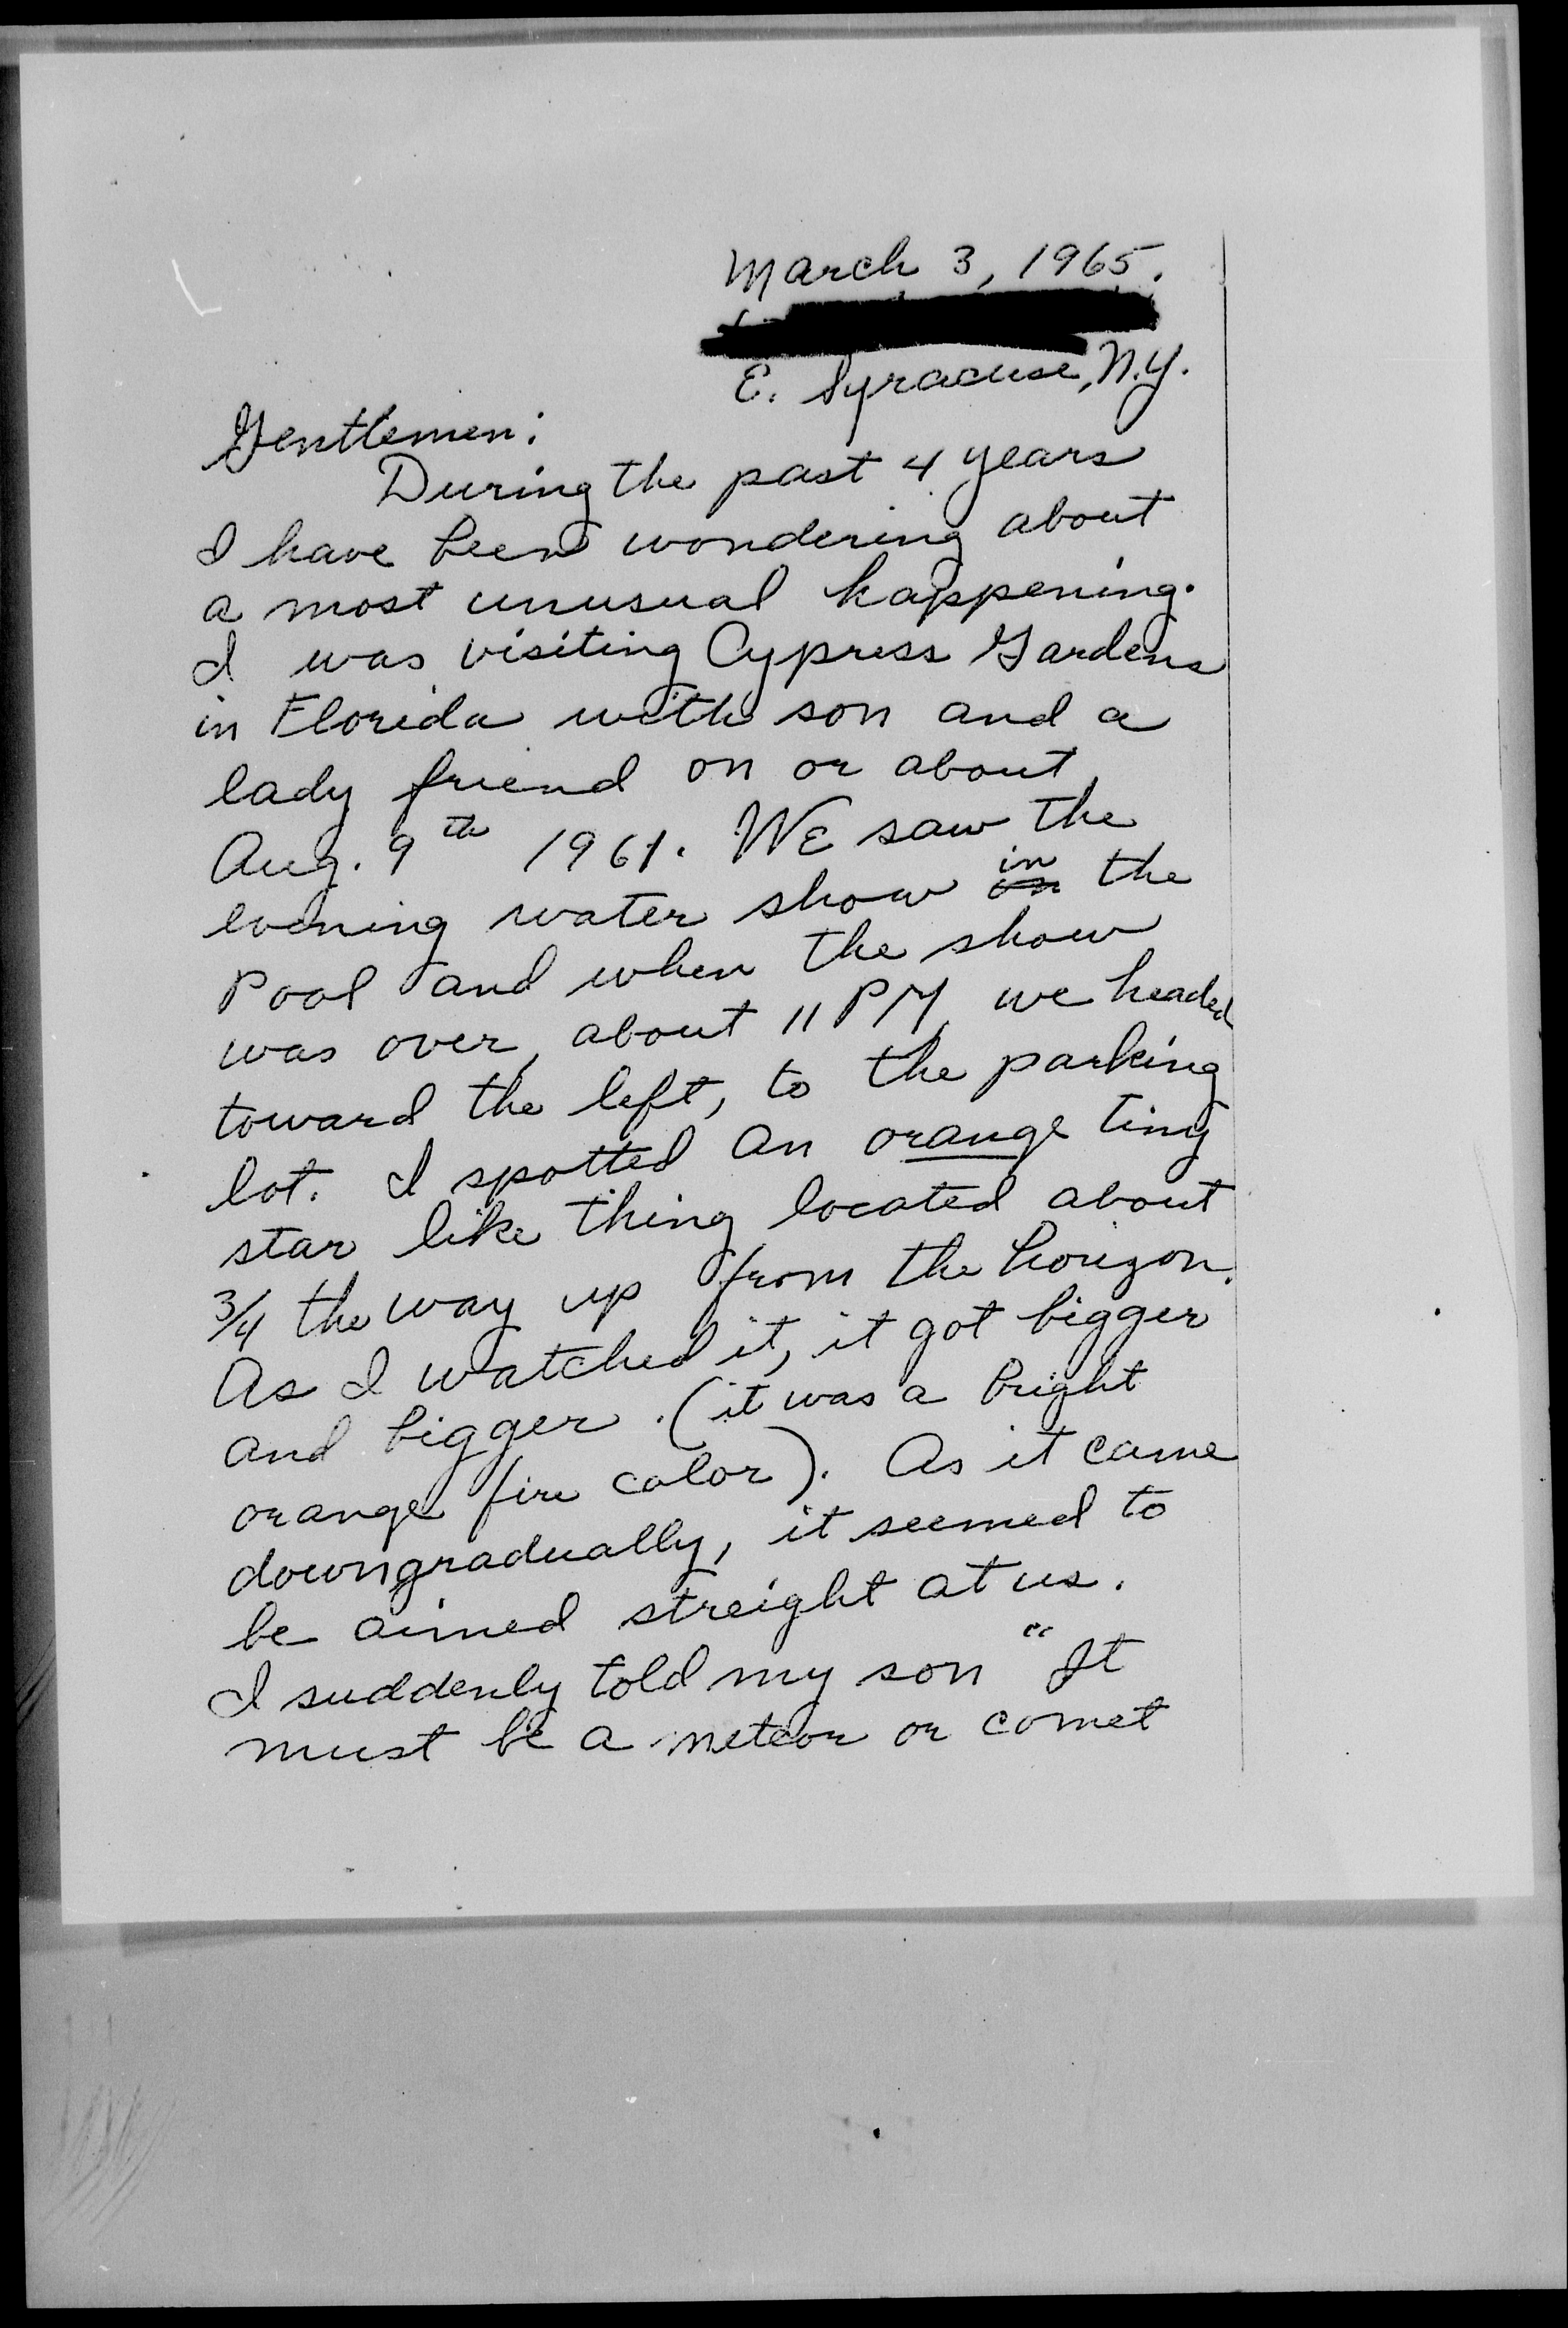 March 3, 1965.
E. Syracuse, N.Y.
Gentlemen:
During the past 4 years
I have been wondering about
a most unusual happening.
I was visiting Cypress Gardens
in Florida with son and a
lady friend on or about
Aug. 9th 1961. WE saw the
evening water show in the
Pool and when the show
was over, about 11 PM, we headed
toward the left, to the parking
lot. I spotted an orange tiny
star like thing located about
3/4 the way up from the horizon.
As I watched it, it got bigger
and bigger. (it was a bright
orange fire color). As it came
down gradually, it seemed to
be aimed streight at us.
I suddenly told my son "It
must be a meteor or comet